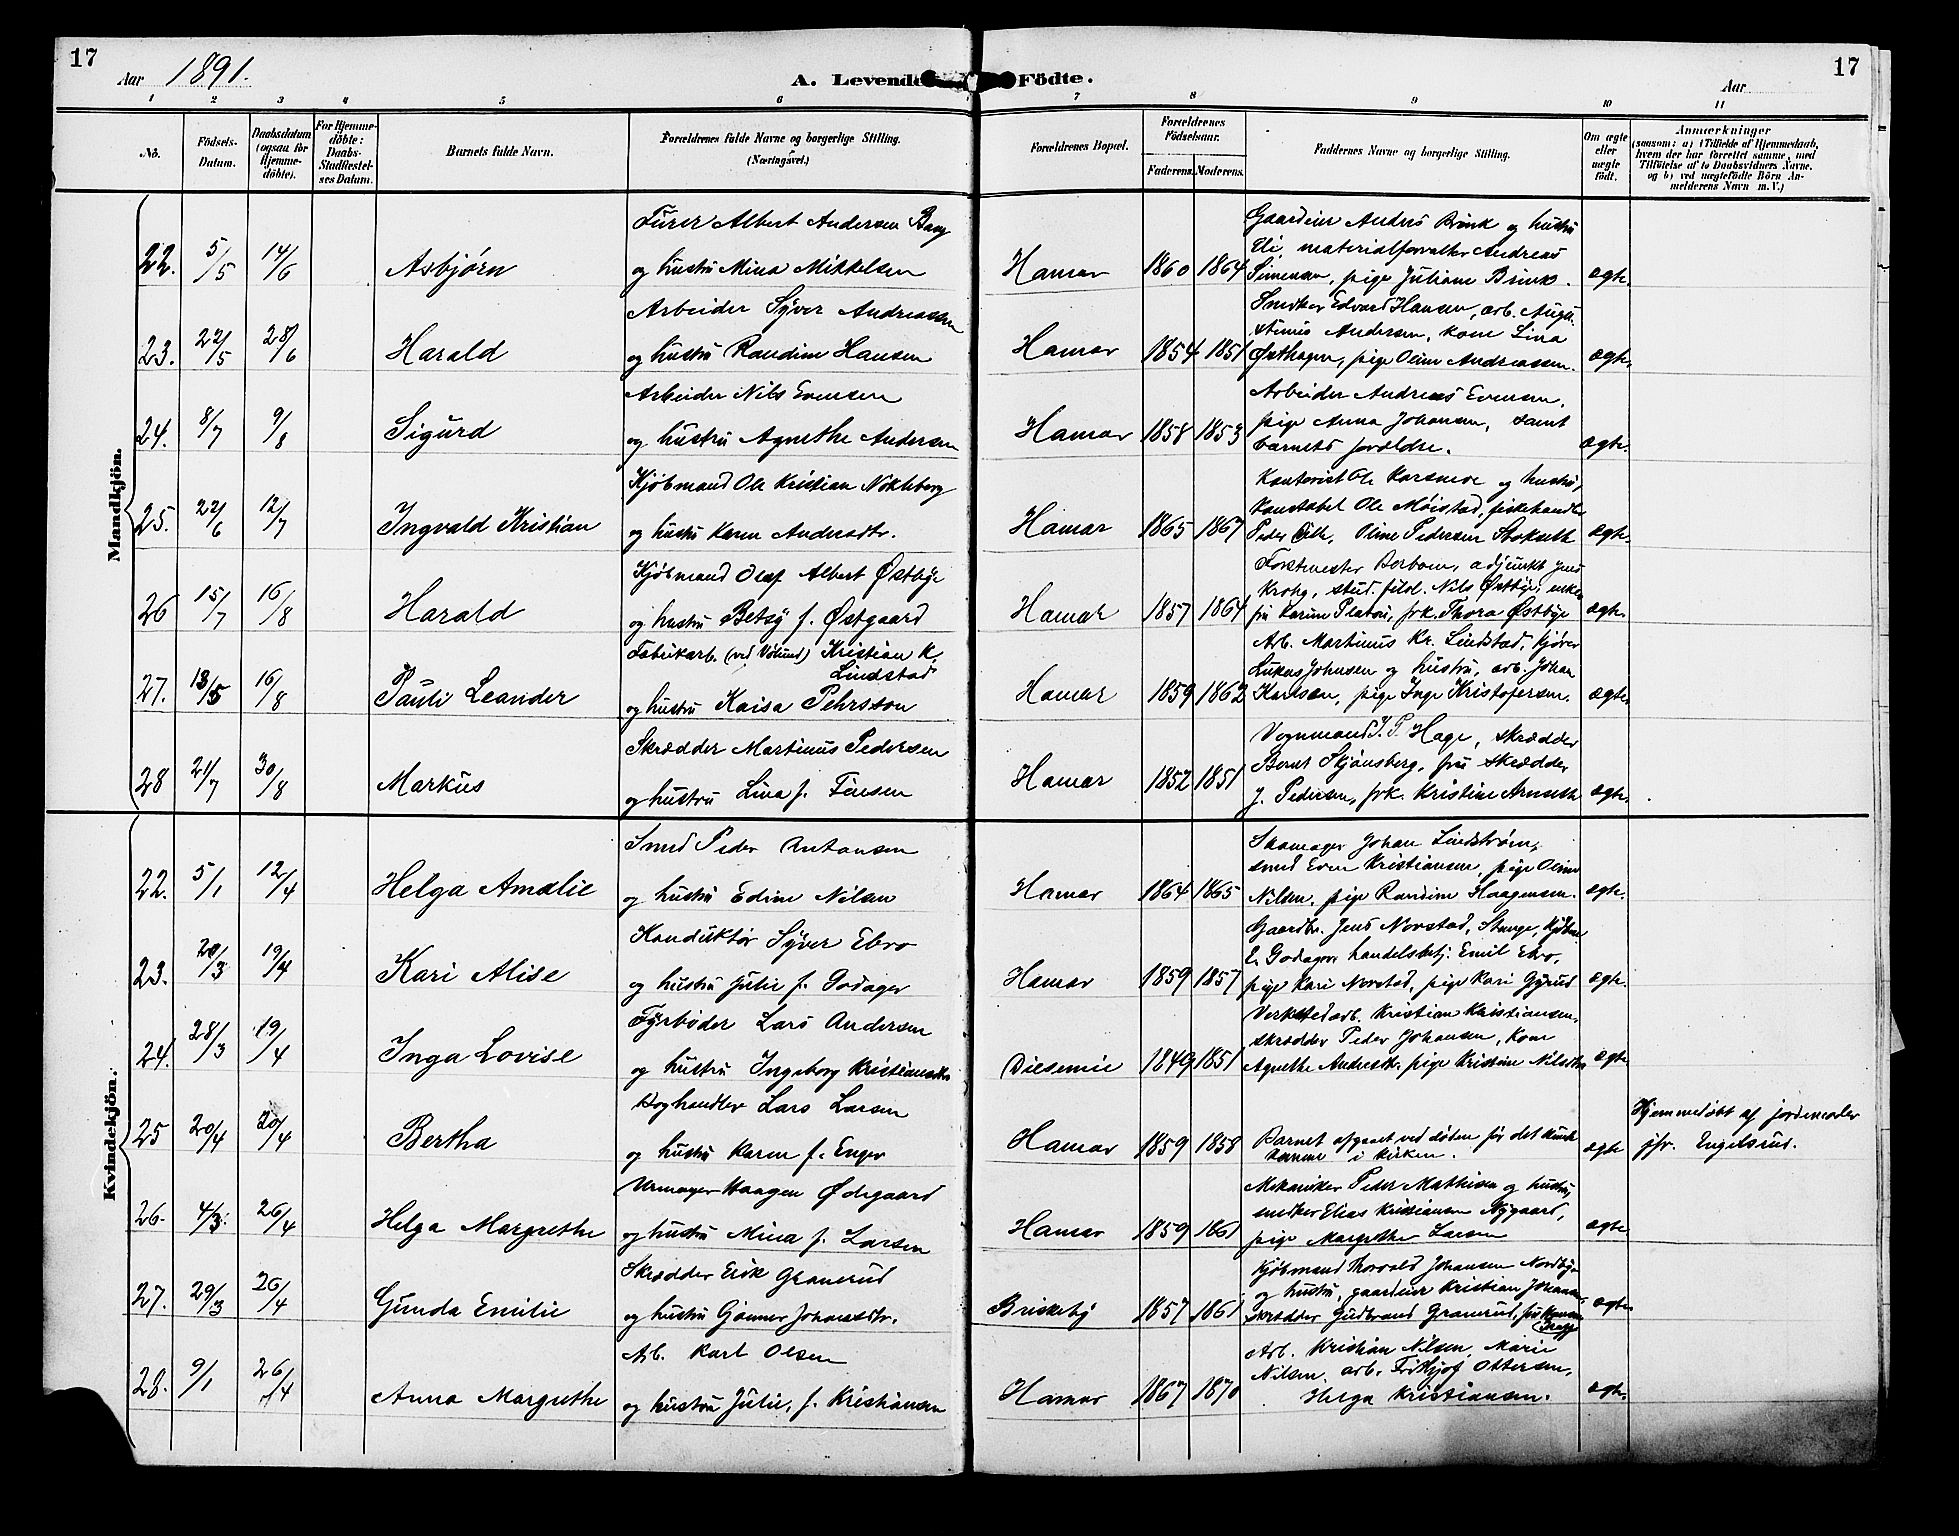 17
Aar 1891.
A. Levende Födte.
Aar
17
1 2 3 4 5 6 7 8 9 10 11
No.
Födsels-Datum.
Daabsdatum (ogsaa for Hjemmedöbte).
For Hjemmedöbte: Daabs-Stadfæstelses Datum.
Barnets fulde Navn.
Forældrenes fulde Navne og borgerlige Stilling.
(Næringsvei.)
Forældrenes Bopæl.
Forældrenes Födselsaar.
Faderens. Moderens.
Faddernes Navne og borgerlige Stilling.
Om ægte eller uægte født.
Anmærkninger
(saasom: a) i Tilfælde af Hjemmedaab, hvem der har forrettet samme, med Tilföielse af to Daabsvidners Navne, og b) ved uægtefödte Börn Anmelderens Navn m. V.)
Mandkjön.
22. 5/5 14/6 Asbjørn
Furer Albert Andersen Bang
og hustru Mina Mikkelsen
Hamar 1860 1864
Gaardeier Andreas Brink og hustru
Eli, materialforvalter Andreas
Simensen, pige Juliane Brink.
ægte.
23. 22/5 28/6 Harald
Arbeider Syver Andreassen
og hustru Randine Hansen
Hamar 1854 1851
Snedker Edvard Hansen, arb. Augu-
stinus Andersen, kone Lina
Østhagen, pige Oline Andreassen.
ægte.
24. 8/7 9/8 Sigurd
Arbeider Nils Evensen
og hustru Agnethe Andersen
Hamar 1858 1853
Arbeider Andreas Evensen,
pige Anna Johansen, samt
barnets forældre.
ægte.
25. 22/6 12/7 Ingvald Kristian
Kjøbmand Ole Kristian Nøkleberg
og hustru Karen Andersdtr.
Hamar 1865 1867
Kontorist Ole Korsmoe og hustru,
Konstabel Ole Möistad, fiskehandler
Peder Oline Pedersen Stokseth
ægte.
26 15/7 16/8 Harald
Kjøbmand Oluf Albert Østbye
og hustru Betsy f. Østgaard
Hamar 1857 1864
Forstmester Barbom, adjunkt Jens
Krohg, stud. filol. Nils Østbye, enke-
fru Karine Platou, frk. Thora Østbye
ægte.
27. 13/5 16/8 Pauli Leander
Fabrikarb. (ved Vølund) Kristian K.
Lindstad
og hustru Kaisa Pehrsson
Hamar 1859 1862
Arb. Martinus Kr. Lindstad, kjører
Lukas Johnsen og hustru, arb. Johan
Karlsen, pige Inge Kristofersen.
ægte.
28 21/7 30/8 Markus
Skrædder Martinus Pedersen
og hustru Lina f. Finsen
Hamar 1852 1851
Vognmand J. P. Hage, skrædder
Bernt Skjønsberg, fru skrædder
J. Pedersen, frk. Kristine Arneseth
ægte.
Kvindekjön.
22. 5/1 12/4 Helga Amalie
Smed Peder Antonsen
og hustru Edine Nilsen
Hamar 1864 1865
Skomager Johan Lindstrøm,
smed Even Kristiansen, pige Oline
Nilsen, pige Randine Haagensen.
ægte.
23. 20/3 19/4 Kari Alise
Konduktør Syver Ebro
og hustru Julie f. Godager
Hamar 1859 1857
Gaardbr. Jens Norstad, Stange,
E. Godager, handelsbetj. Emil Ebro,
pige Kari Norstad, pige Kari Gyrud
ægte.
24. 28/3 19/4 Inga Lovise
Fyrbøder Lars Andersen
og hustru Ingeborg Kristiansdtr
Disenvie 1849 1851
Verkstedarb. Kristian Kristiansen,
skrædder Peder Johansen, kone
Agnethe Andersdtr. pige Kristine Nilsdtr
ægte.
25 20/4 20/4 Bertha
Høghandler Lars Larsen
og hustru Karen f. Enger
Hamar 1859 1858
Barnet afgaaet ved døden før det kunde
komme i kirken.
ægte
Hjemmedøbt af jordemoder
jfr. Engelsrud.
26. 4/3. 26/4 Helga Margrethe
Urmager Haagen Ødegaard
og hustru Mina f. Larsen
Hamar 1859 1861
Mekaniker Peder Mathisen og hustru,
snedker Elias Kristiansen Nygaard,
pige Margrethe Larsen
ægte
27. 29/3 26/4 Gunda Emilie
Skrædder Erik Granerud
og hustru Gønner Johansdtr.
Briskeby 1857 1861
Kjøbmand Thorvald Johansen Nordby
og hustru, gaardeier Kristian Johansen,
skrædder Gudbrand Granerud,
ægte
28. 9/1 26/4 Anna Margrethe
Arb. Karl Olsen
og hustru Julie, f. Kristiansen
Hamar 1867 1870
Arb. Kristian Nilsen, Marie
Nilsen, arb. Fritkjof Ottersen,
Helga Kristiansen.
ægte.